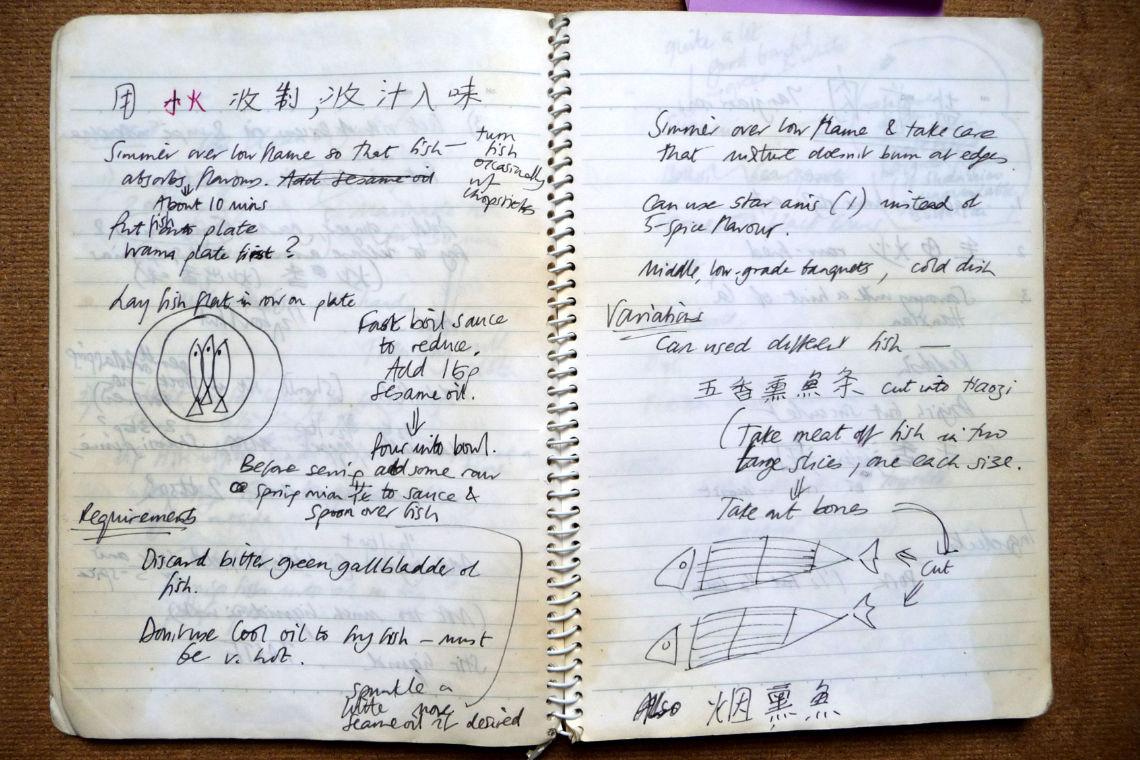 用 小火 收制,收汁入味
Simmer over low flame so that fish —
absorbs flavours. Add sesame oil
turn
fish
occasionally
w/
chopsticks
About 10 mins
Put fish onto plate
plate first?
Lay fish flat in row on plate
Fast boil sauce
to reduce.
Add 1 tsp
sesame oil.
Pour into bowl.
Before serving add some raw
to sauce &
spoon over fish
Requirements
Discard bitter green gallbladder of
fish.
Don't use cool oil to fry fish – must
be v. hot.
sprinkle a
little more
sesame oil if desired
Simmer over low flame & take care
that mixture doesn't burn at edges
Can use star anis (1) instead of
5-spice flavour.
Middle, low-grade banquets, cold dish
Variations
Can used different fish —
五香熏魚条 cut into tiaozi
(Take meat off fish in two
large slices, one each size.
Take out bones
Cut
Also 烟熏魚